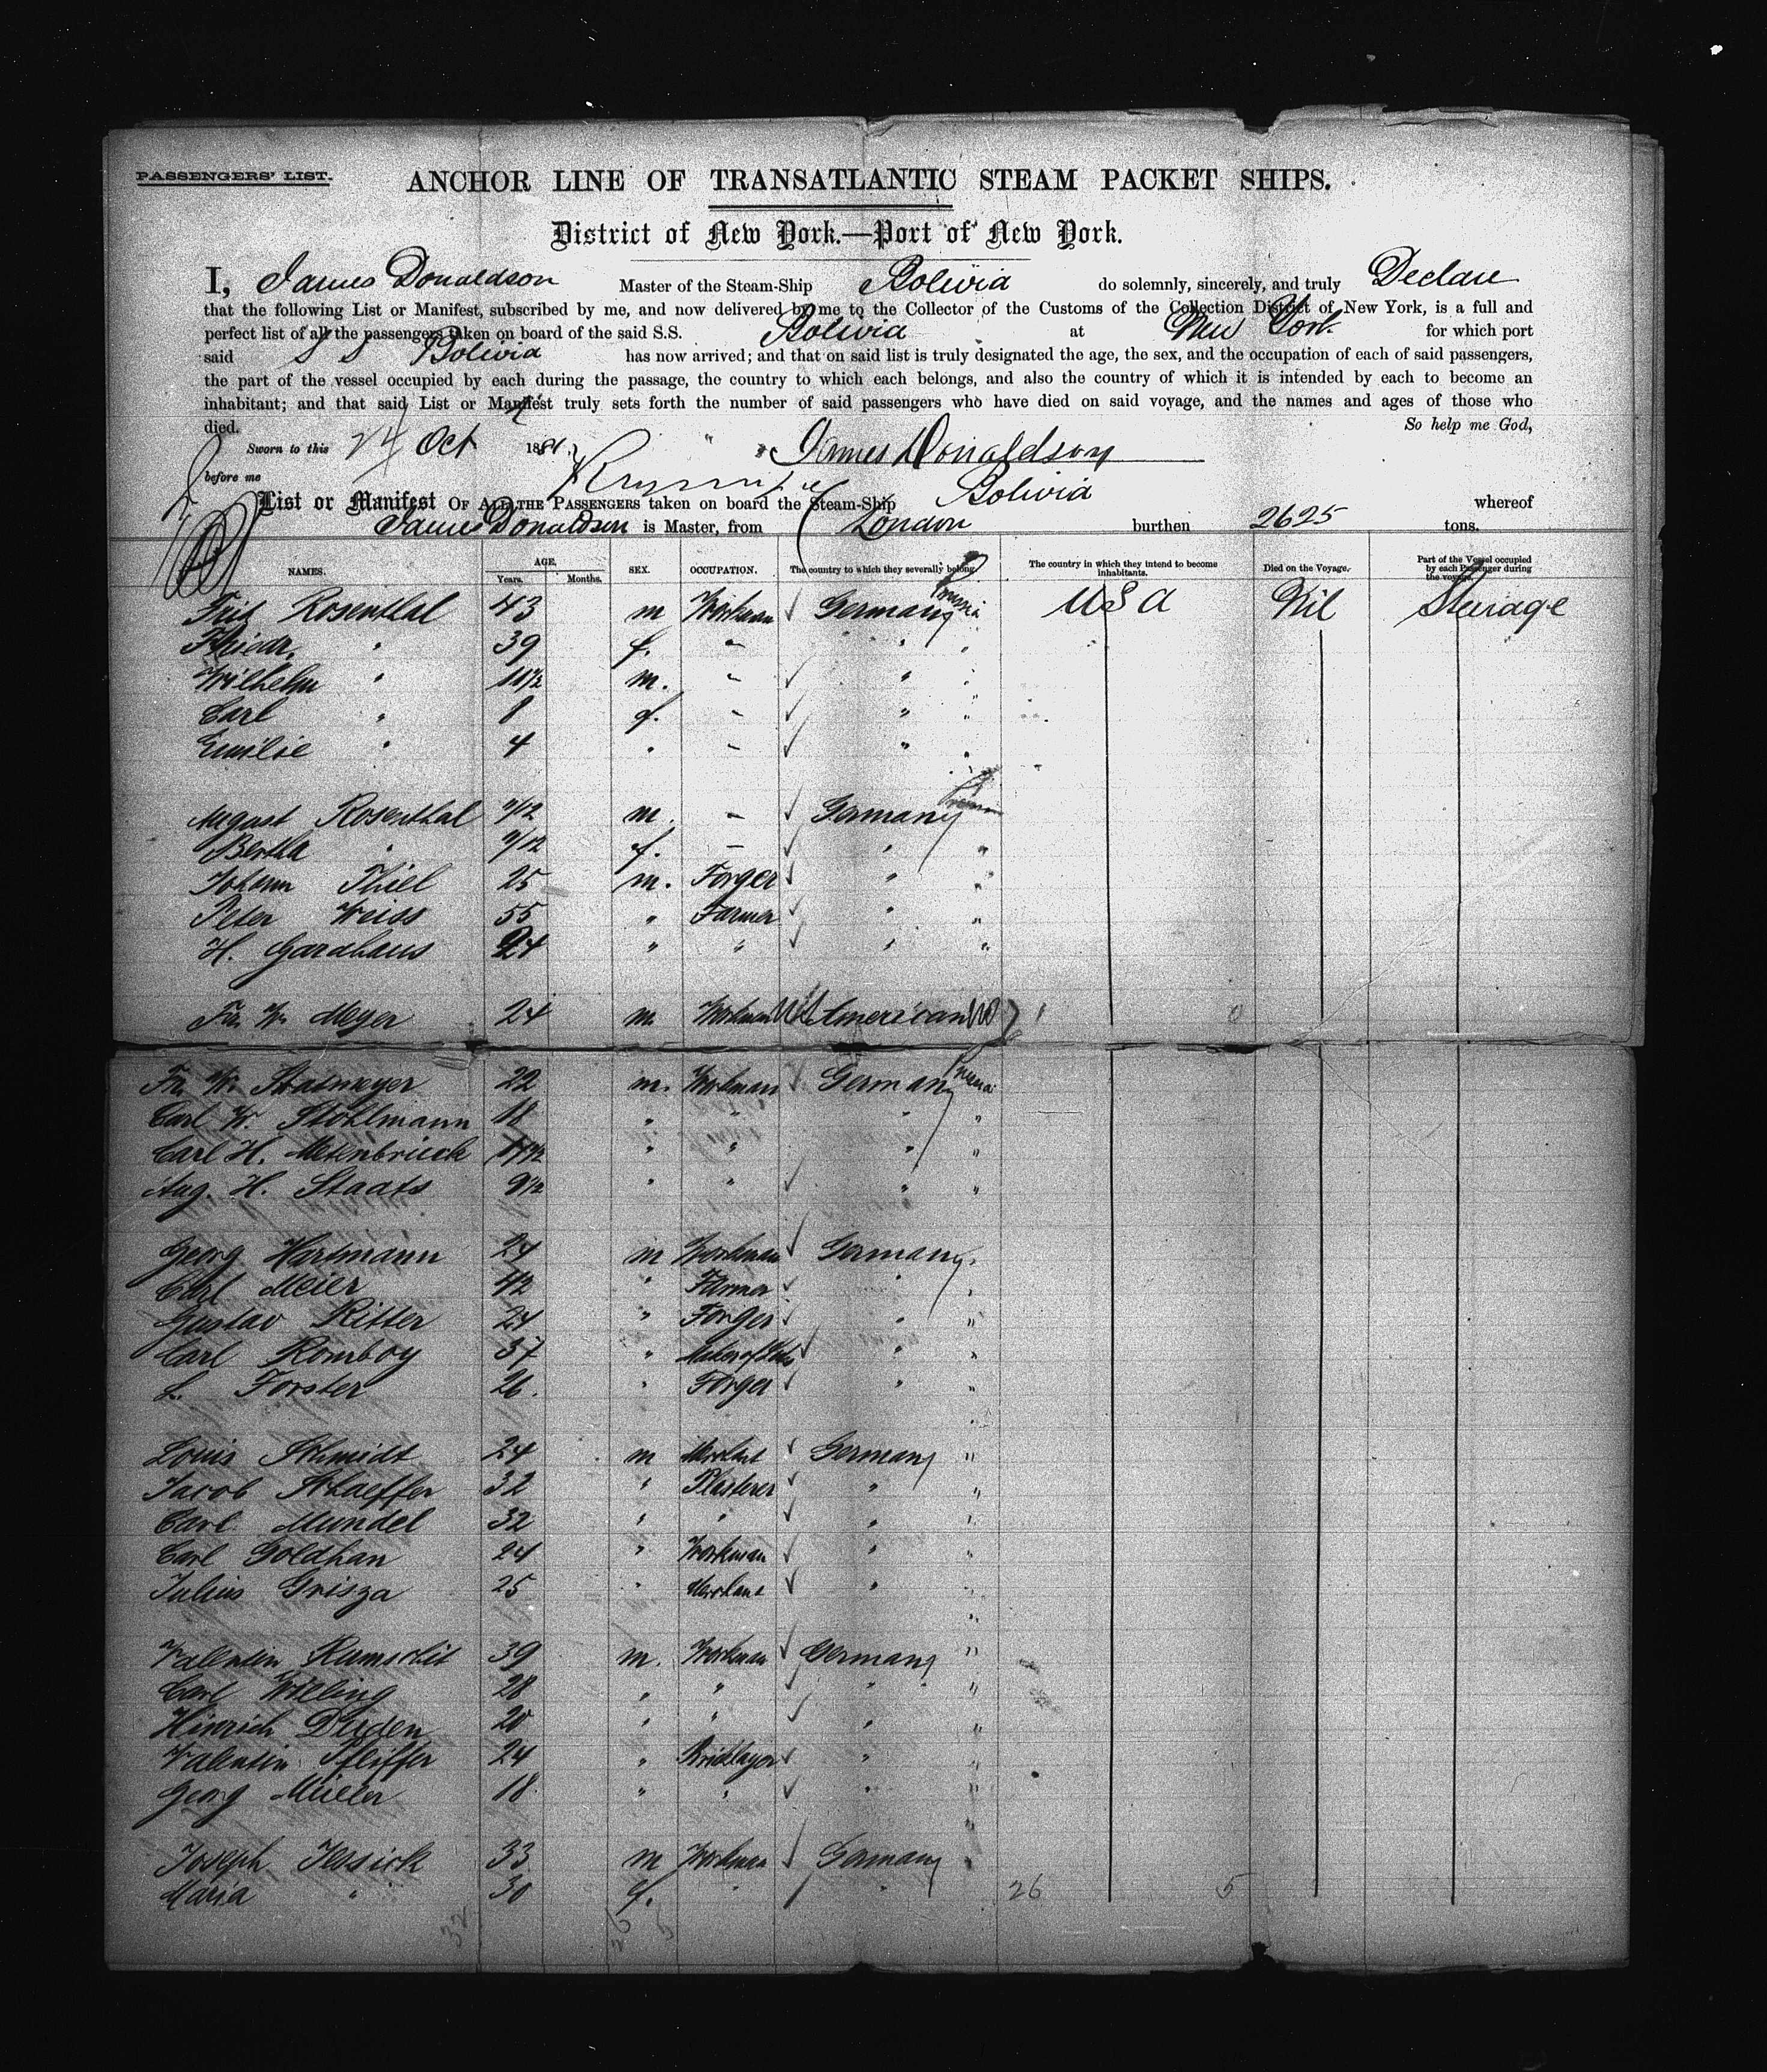 PASSENGERS' LIST.
ANCHOR LINE OF TRANSATLANTIC STEAM PACKET SHIPS.
District of New York.—Port of New York.
I, James Donaldson Master of the Steam-Ship Bolivia do solemnly, sincerely, and truly Declare
that the following List or Manifest, subscribed by me, and now delivered by me to the Collector of the Customs of the Collection District of New York, is a full and
perfect list of all the passengers taken on board of the said S.S. Bolivia at New York for which port
said S S Bolivia has now arrived; and that on said list is truly designated the age, the sex, and the occupation of each of said passengers,
the part of the vessel occupied by each during the passage, the country to which each belongs, and also the country of which it is intended by each to become an
inhabitant; and that said List or Manifest truly sets forth the number of said passengers who have died on said voyage, and the names and ages of those who
died. So help me God,
Sworn to this 24 Oct 1881 James Donaldson
before me
List or Manifest OF ALL THE PASSENGERS taken on board the Steam-Ship Bolivia whereof
James Donaldson is Master, from London burthen 2625 tons.
NAMES. AGE. Years. Months. SEX. OCCUPATION. The country to which they severally belong. The country in which they intend to become inhabitants. Died on the Voyage. Part of the Vessel occupied by each Passenger during the voyage.
Fritz Rosenthal 43 m Workman Germany Prussia USA Nil Steerage
Friedr. " 39 f. " " "
Wilhelm " 11½ m. " " "
Carl " 8 f. " " "
Emilie " 4 " " " "
August Rosenthal 11/12 m. " Germany
Bertha " 11/12 f. " " "
Johann Thiel 25 m. Forger " "
Peter Weiss 55 " Farmer " "
H. Garahaus 24 " " " "
Fr. W. Meyer 24 m Workman American
Fr. W. Statmeyer 22 m. Workman Germany Prussia
Carl W. Stohlmann 18 " " " "
Carl H. Metenbrück " " " "
Aug. H. Staats 9½ " " " "
Georg Hartmann 24 m Workman Germany
Carl Meier 42 " Farmer " "
Gustav Ritter 24 " Forger " "
Carl Romboy 37 " " "
L. Forster 26. " Forger " "
Louis Schmidt 24 m Germany "
Jacob Schaeffer 32 " Plasterer " "
Carl Mundel 32 " " " "
Carl Goldhan 24 " Workman " "
Julius Grisza 25 " " "
Valentin Ramschit 39 m. Workman Germany "
Carl Willing 28 " " " "
Hinrich Dreden 20 " " " "
Valentin Pfeiffer 24 " Bricklayer " "
Georg Müller 18 " " " "
Joseph Jessick 33 m Workman Germany "
Maria " 30 f. " " 26 5
32 26 5